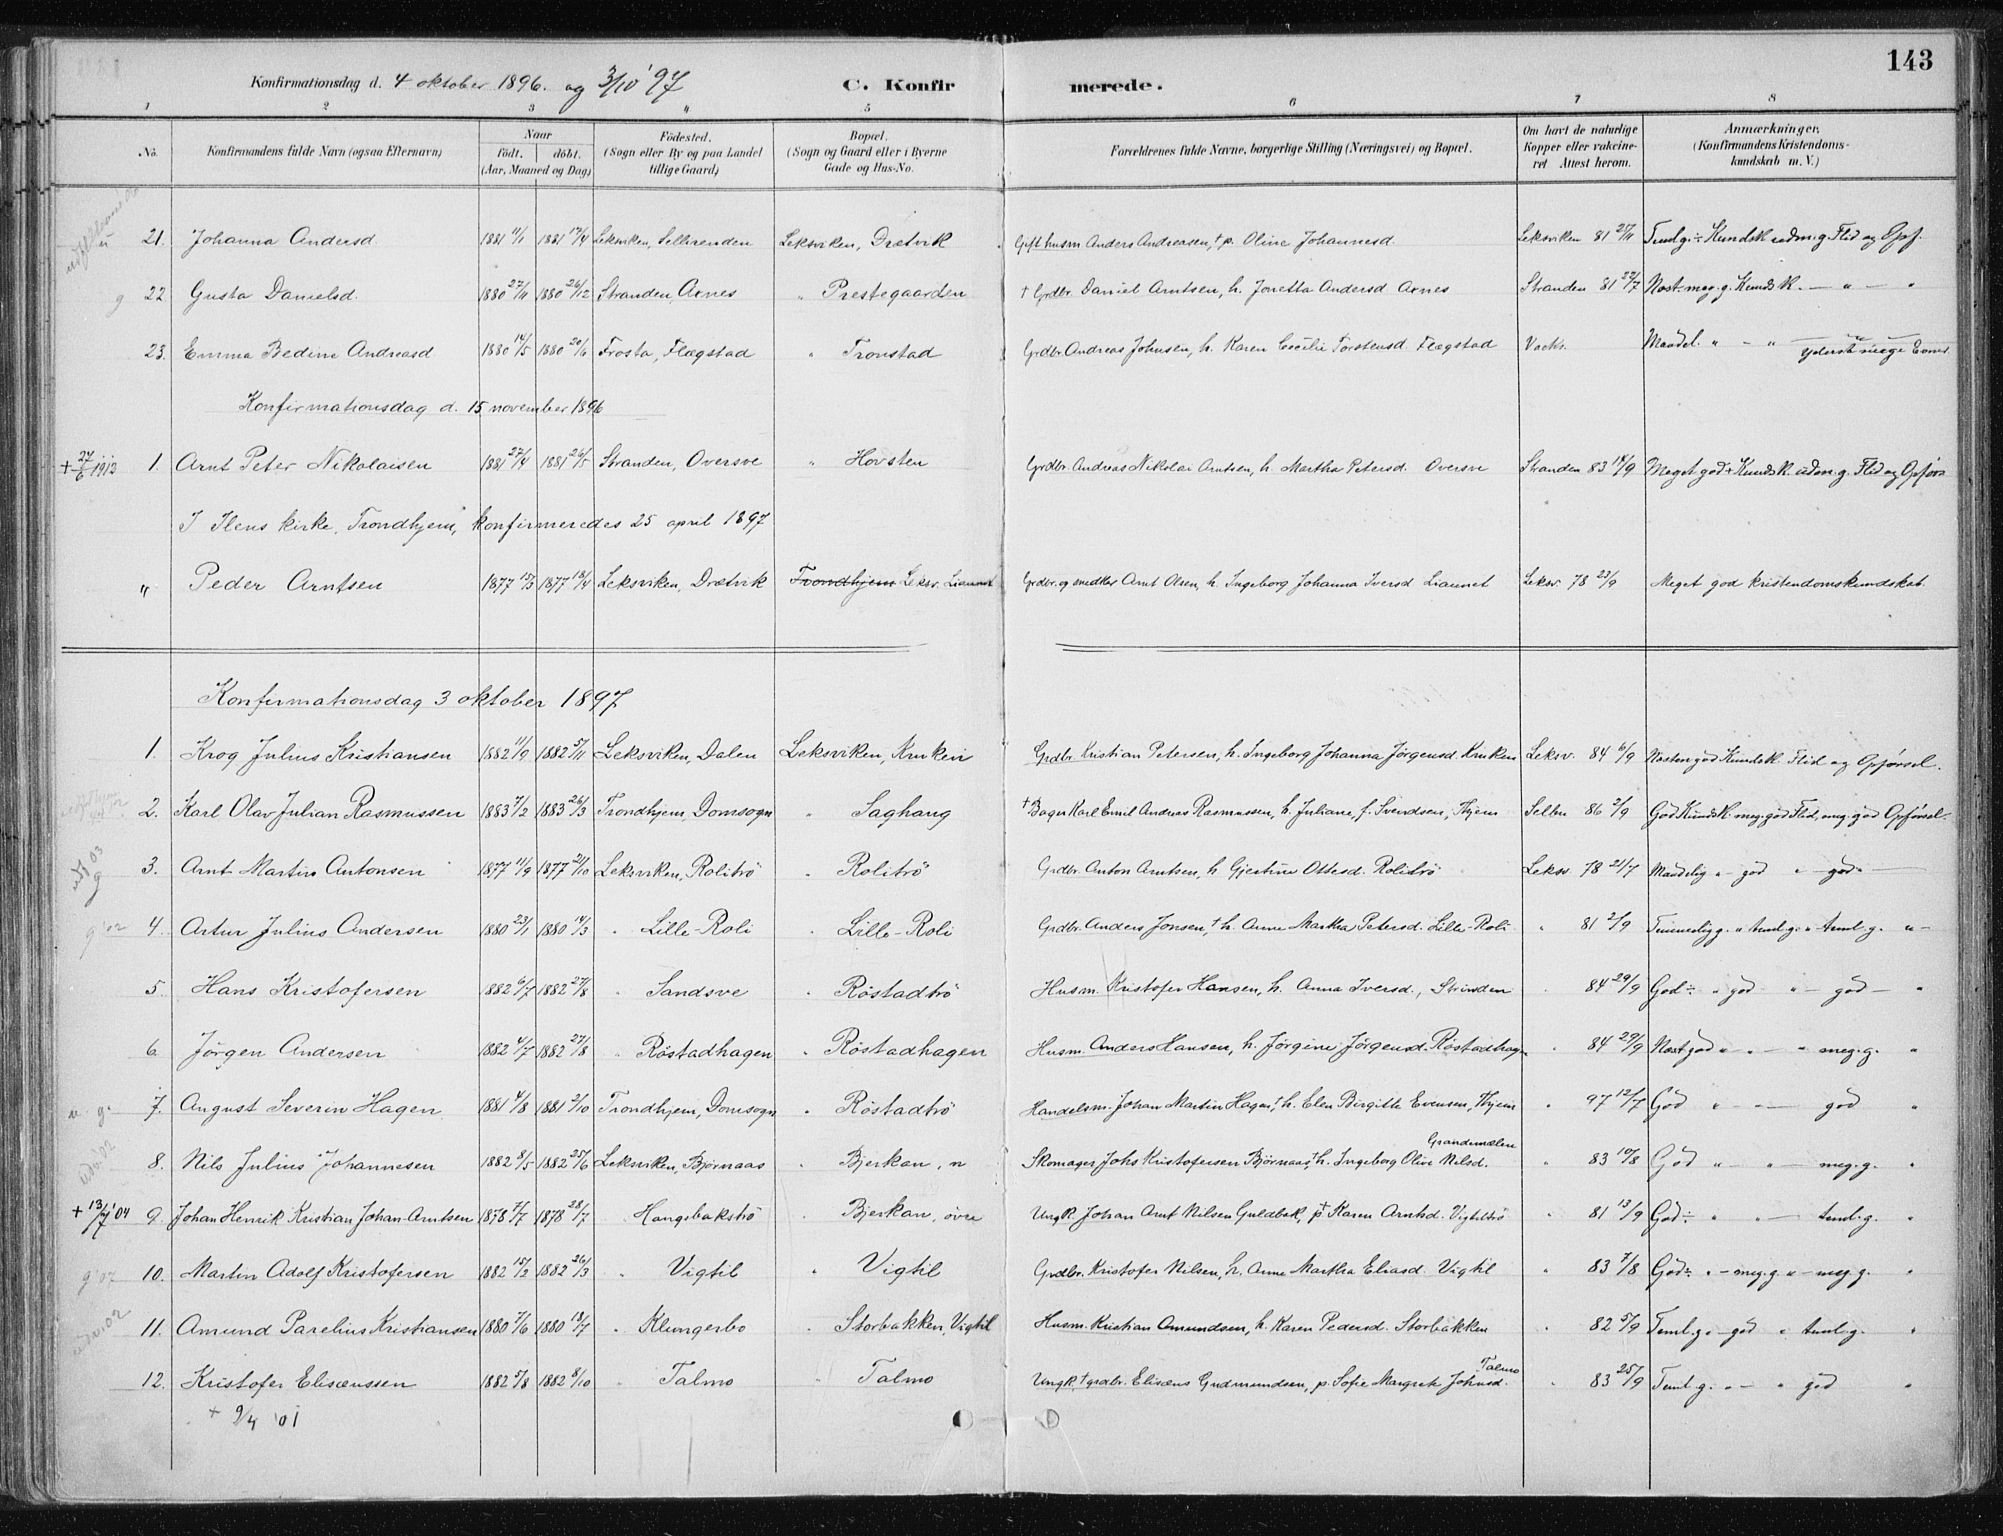 143
Konfirmationsdag d. 4 oktober 1896. og 3/10 '97
C. Konfir merede.
1 2 3 4 5 6 7 8
No. Konfirmandens fulde Navn (ogsaa Efternavn) Naar født. døbt. (Aar, Maaned og Dag) Fødested. (Sogn eller By og paa Landet tillige Gaard) Bopæl. (Sogn og Gaard eller i Byerne Gade og Hus-No. Forældrenes fulde Navne, borgerlige Stilling (Næringsvei) og Bopæl. Om havt de naturlige Kopper eller vakcineret Attest herom. Anmærkninger. (Konfirmandens Kristendomskundskab m. V.)
21. Johanna Andersd. 1881 11/1 1881 17/4 Leksviken, Sellirenden Leksviken, Drætvik Gift husm. Anders Andreasen, † p. Oline Johannesd. Leksviken 81 27/11 Teml. g. ÷ Kundsk. udm. g. Flid og Opf.
g 22 Gusta Danielsd. 1880 27/11 1880 26/12 Stranden, Axnes " Prestegaarden † Grdbr. Daniel Arntsen, h. Jonetta Andersd Axnes Stranden 81 22/7 Næst-meg. g. Kundsk. — " — "
23. Emma Bedine Andreasd 1880 14/5 1880 20/6 Frosta, Flægstad " Tronstad Grdbr. Andreas Johnsen, h. Karen Cecilie Torstensd. Flægstad Vack. Maadel. " — " yderst svage Evner
Konfirmationsdag d. 15 november 1896
+ 27/6 1913 1. Arnt Peter Nikolaisen 1881 27/4 1881 26/5 Stranden, Oversve " Hovsten Grdbr. Andreas Nikolai Arntsen, h. Martha Petersd. Oversve Stranden 83 14/9 Meget god + Kundsk. udm. g. Flid og Opførs
I Ilens kirke, Trondhjem, konfirmeredes 25 april 1897
" Peder Arntsen 1877 15/3 1877 18/4 Leksviken, Drætvik Trondhjem Leksv. Liaunet Grdbr. og smedbr. Arnt Olsen, h. Ingeborg Johanna Iversd Liaunet Leksv. 78 23/9 Meget god kristendomskundskab.
Konfirmationsdag 3 oktober 1897
1. Krog Julius Kristiansen 1882 11/9 1882 5/11 Leksviken, Dalen Leksviken, Kruken Grdbr. Kristian Petersen, h. Ingeborg Johanna Jørgensd Kruken Leksv. 84 6/9 Næsten god Kundsk. Flid og Opførsel.
2. Karl Olav Julian Rasmussen 1883 7/2 1883 26/3 Trondhjem, Domsogn " Saghaug † Bager Karl Emil Andreas Rasmussen, h. Juliane, f. Svendsen, Thjem Selbu 86 2/9 God Kundsk. meg. god Flid, meg. god Opførsel.
udf 03 g 3. Arnt Martin Antonsen 1877 11/9 1877 21/10 Leksviken, Rolitrö " Rolitrö Grdbr. Anton Arntsen, h Gjertine Ottesd. Rolitrö Leksv. 78 21/7 Maadelig " god " — god " —
g '02 4. Artur Julius Andersen 1880 23/1 1880 14/3 " Lille-Roli " Lille-Roli Grdbr. Anders Jonsen, † h. Anne Martha Petersd. Lille-Roli " 81 2/9 Temmelig g. " teml. g. " teml. g. " —
5. Hans Kristofersen 1882 6/7 1882 27/8 " Sandsve " Røstadtrö Husm. Kristofer Hansen, h. Anna Iversd., Strinden " 84 29/9 God ÷ " god " — god — "
6. Jørgen Andersen 1882 4/7 1882 27/8 " Røstadhagen " Røstadhagen Husm. Anders Hansen, h. Jørgine Jørgensd. Røstadhagn " 84 29/9 Næst god " " — " meg. g. "
u g. 7. August Severin Hagen 1881 4/8 1881 2/10 Trondhjem, Domsogn " Røstadtrö Handelsm. Johan Martin Hagen, † h. Elen Birgitte Evensen, Thjem " 97 12/7 God " — — god "
udv. 02 8. Nils Julius Johannesen 1882 8/5 1882 25/6 Leksviken, Björnaas " Bjerkan, n Skomager Johs Kristofersen Björnaas, † h. Ingeborg Olive Nilsd. Grandemælen " 83 10/8 God " — " — meg. g. "
+ 13/7 '04 9. Johan Henrik Kristian Johan-Arntsen 1878 7/7 1878 28/7 Haugsbakströ " Bjerkan, övre Ungk. Johan Arnt Nilsen Guldbak, p † Karen Arntsd. Vigtiltrö " 81 13/9 God ÷ " " — teml. g. "
g '07 10. Martin Adolf Kristofersen 1882 15/2 1882 26/3 " Vigtil " Vigtil Grdbr. Kristofer Nilsen, h. Anne Martha Eliasd. Vigtil " 83 7/8 God ÷ " — meg. g " — meg. g. "
udv. 02 11. Amund Parelius Kristiansen 1880 7/6 1880 18/7 " Klungerbo " Storbakken, Vigtil Husm. Kristian Amundsen, h. Karen Pedersd. Storbakken " 82 5/9 Teml. g. " — god " teml. g. "
12. Kristofer Elisæussen 1882 5/8 1882 8/10 " Talmo " Talmo Ungk, † grdbr. Elisæus Gudmundsen, p. Sofie Margrete Johnsd. Talmo " 83 25/9 Teml. g. " — " god "
+ 9/4 '01